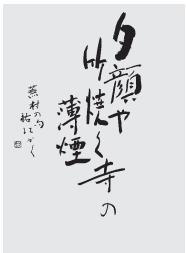 夕顔や
竹焼く寺の
薄煙
蕪村の句